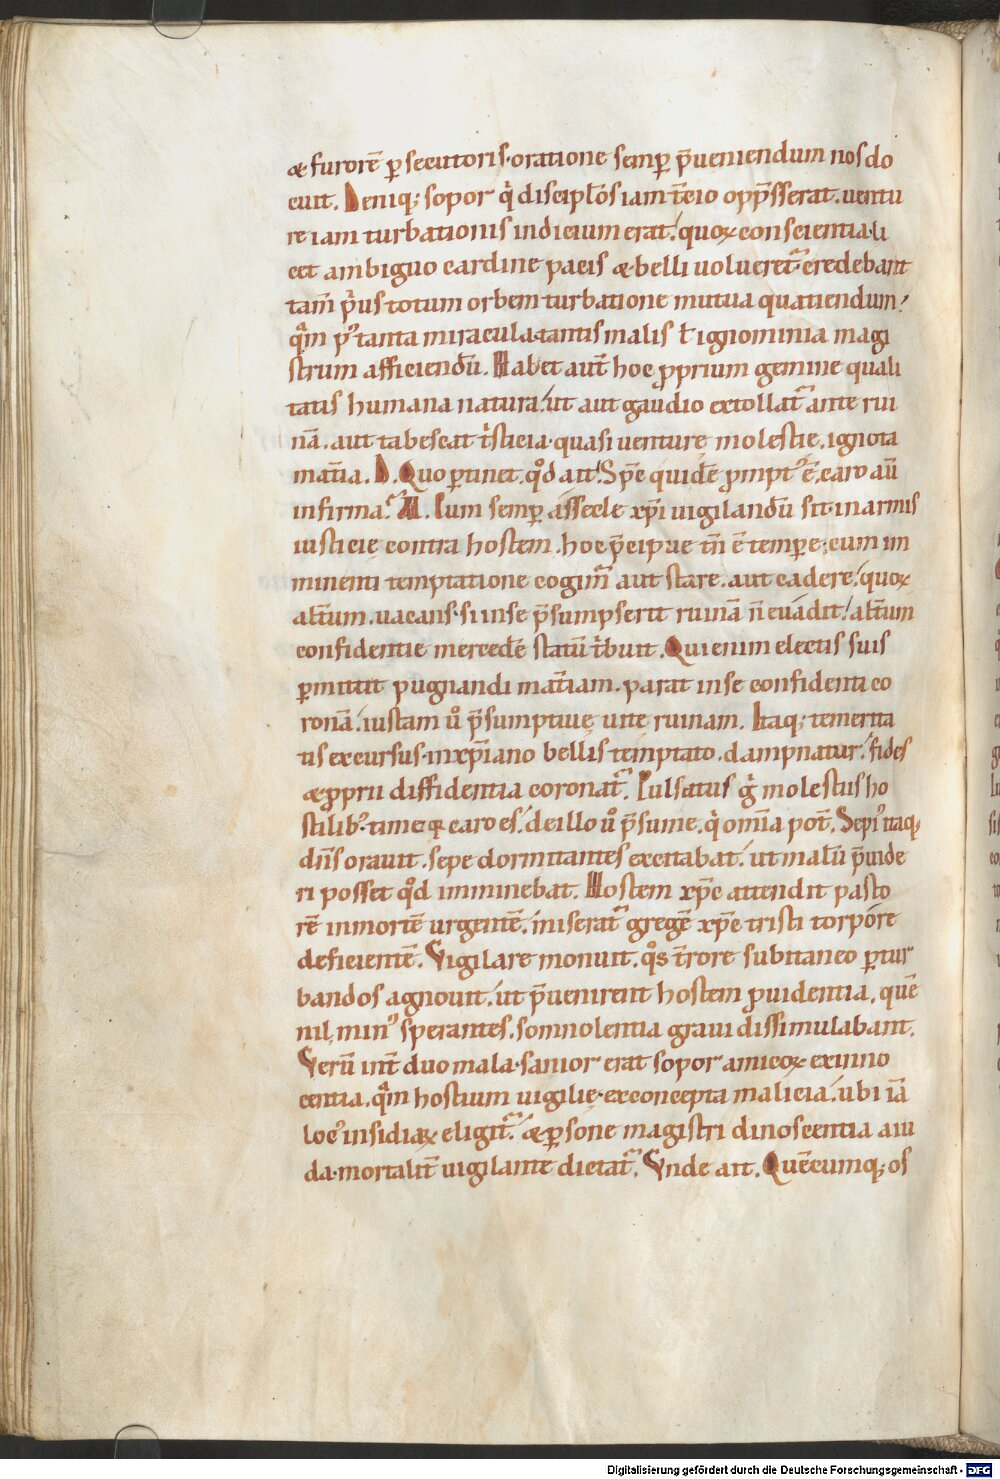 & furorē p̱secutoris· oratione semp̱ p̄veniendum nos do
cuit. Deniq; sopor q̇ discipłos iam t̄cio opp̄sserat. ventu
re iam turbationis indicium erat! quoꝝ conscientia· li
cet ambiguo cardine pacis & belli volveret᷑· credebant
tam̄ p̓us totum orbem turbatione mutua quatiendum!
q̄m pꝰ tanta miracula· tantis malis ł ignominia magi
strum afficiendū. Habet aut̄ hoc ꝓprium gemine quali
tatis humana natura! ut aut gaudio extollat᷑ ante rui
nā. aut tabescat t̓sticia· quasi venturę molestię. ignota
mat̄ia. D. Quo p̱tinet. qͦd ait! Sp̄c quidē ꝓmptꝰ ē. caro aū
infirma᷑ M. Cum semp̱ assecle xp̄i vigilandū sit· in armis
iusticię contra hostem. hoc p̄cipue tn̄ ē temp̱e· cum im
minenti temptatione cogim᷑ aut stare. aut cadere! quoꝝ
alt̄um. vacans· si in se p̄sumpserit ruinā n̄ evadit! alt̄um
confidentie mercedē statū t̓buit. Qui enim electis suis
p̱mittit pugnandi mat̄iam. parat in se confidenti co
ronā! iustam ů p̄sumptivę vite ruinam. Itaq; temerita
tis excursus· in xp̄iano bellis temptato. dampnatur! fides
& ꝓprii diffidentia coronat᷑. Pulsatus g̓ molestus ho
stilibꝰ· time q̨ caro es! de illo ů p̄sume. q̇ om̄ia pot̄. Sepiꝰ itaq;
dn̄s oravit. sepe dormitantes excitabat! ut malū p̄vide
ri posset qͦd imminebat. Hostem xp̄c attendit pasto
rē in mortē urgentē. miserat᷑ gregē xp̄c tristi torpore
deficientē. Vigilare monuit. qͦs t̄rore subitaneo p̱tur
bandos agnovit. ut p̄venirent hostem ꝓvidentia. quē
nil minꝰ sperantes. somnolentia gravi dissimulabant.
Verū int̄ duo mala· sanior erat sopor amicoꝝ ex inno
centia. q̄m hostium vigilię· ex concepta malicia! ubi iā
locꝰ insidiaꝝ eligit᷑. & p̱sone magistri dinoscentia avi
da· mortalit̄ vigilante dictat᷑. Vnde ait. Quēcumq; os
Digitalisierung gefördert durch die Deutsche Forschungsgemeinschaft - DFG